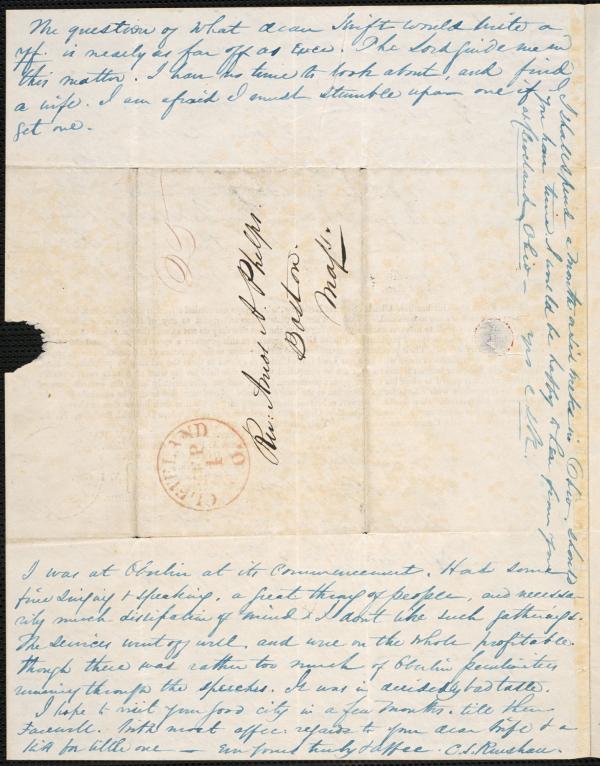 The question of what dear Swift would write a
off. is nearly as far off as ever. The Lord guide me in
this matter. I have no time to look about, and find
a wife. I am afraid I must stumble upon one if I
get one.
I shall spend a month or six weeks in Ohio, should
you have time I would be happy to hear from you
at Cleveland Ohio — yrs C S R.
25
Rev: Amos A Phelps.
Boston.
Mass.
CLEVELAND O.
SEP 1
I was at Oberlin at its Commencement. Had some
fine singing & speaking, a great throng of people, and necessa
rily much dissipation of mind & I dont like such gatherings.
The services went off well, and were on the whole profitable.
though there was rather too much of Oberlin peculiarities
running through the speeches. It was in decidedly bad taste.
I hope to visit your good city in a few months. till then
Farewell. With most affec. regards to your dear wife & a
kiss for little one — Ever yours truly & affec. C. S. Renshaw.